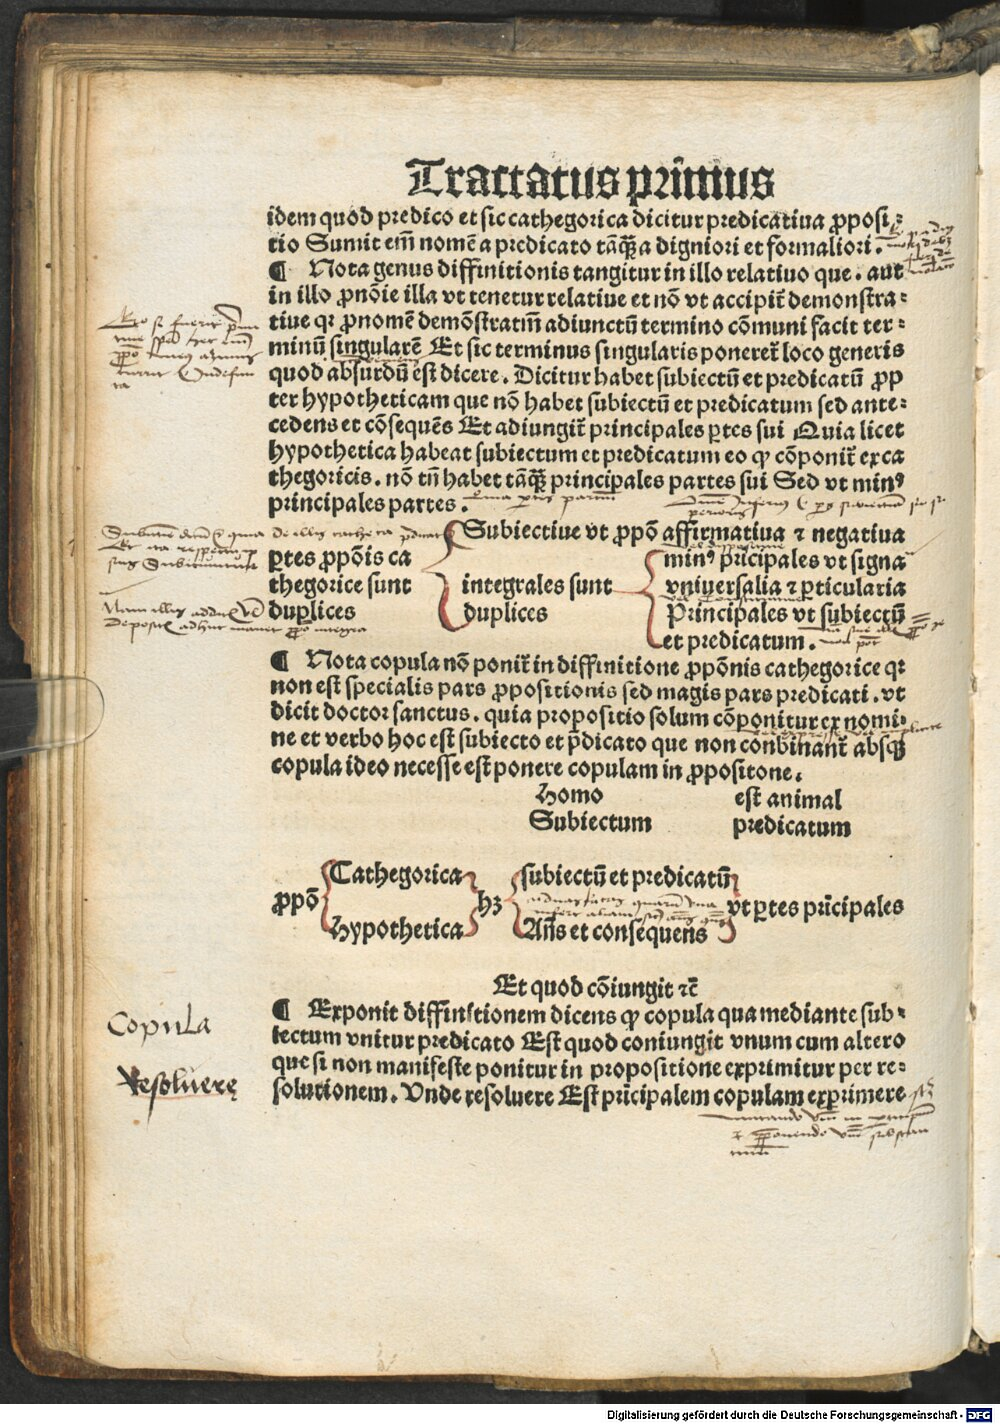 Tractatus prīmus
idem quod predico et sic cathegorica dicitur predicatiua ꝓposi⸗
tio Sumit em̄ nomē a predicato tāꝙ̄ a digniori et formaliori.
¶ Nota genus diffinitionis tangitur in illo relatiuo que. aut
in illo ꝓnōie illa vt tenetur relatiue et nō vt accipit̄ demonstra⸗
tiue qꝛ ꝓnomē demōstratiū adiunctū termino cōmuni facit ter⸗
minū singularē Et sic terminus singularis poneret̄ loco generis
quod absurdū est dicere. Dicitur habet subiectū et predicatū ꝓp
ter hypotheticam que nō habet subiectū et predicatum sed ante⸗
cedens et cōsequēs Et adiungit̄ principales ꝑtes sui Quia licet
hypothetica habeat subiectum et predicatum eo ꝙ cōponit̄ ex ca
thegoricis. nō tn̄ habet tāꝙ̄ principales partes sui Sed vt minꝰ
principales partes.
Subiectiue vt ꝓpō affirmatiua ⁊ negatiua
ꝑtes ꝓpōis ca
thegorice sunt
duplices
integrales sunt
duplices
minꝰ pricipales vt signa
vniuersalia ⁊ ꝑticularia
Principales vt subiectū
et predicatum.
¶ Nota copula nō ponit̄ in diffinitione ꝓpōnis cathegorice qꝛ
non est specialis pars ꝓpositionis sed magis pars predicati. vt
dicit doctor sanctus. quia propositio solum cōponitur ex nomi⸗
ne et verbo hoc est subiecto et p̄dicato que non conbinant̄ absqꝫ
copula ideo necesse est ponere copulam in ꝓpositone.
Homo est animal
Subiectum predicatum
Cathegorica subiectū et predicatū
ꝓpō hꝫ vt ꝑtes pricipales
Hypothetica Añs et consequens
Et quod cōiungit ⁊c̄
¶ Exponit diffinitionem dicens ꝙ copula qua mediante sub⸗
Copula
iectum vnitur predicato Est quod coniungit vnum cum altero
que si non manifeste ponitur in propositione exprimitur per re⸗
Resoluere
solutionem. Vnde resoluere Est pricipalem copulam exprimere
Digitalisierung gefördert durch die Deutsche Forschungsgemeinschaft - DFG